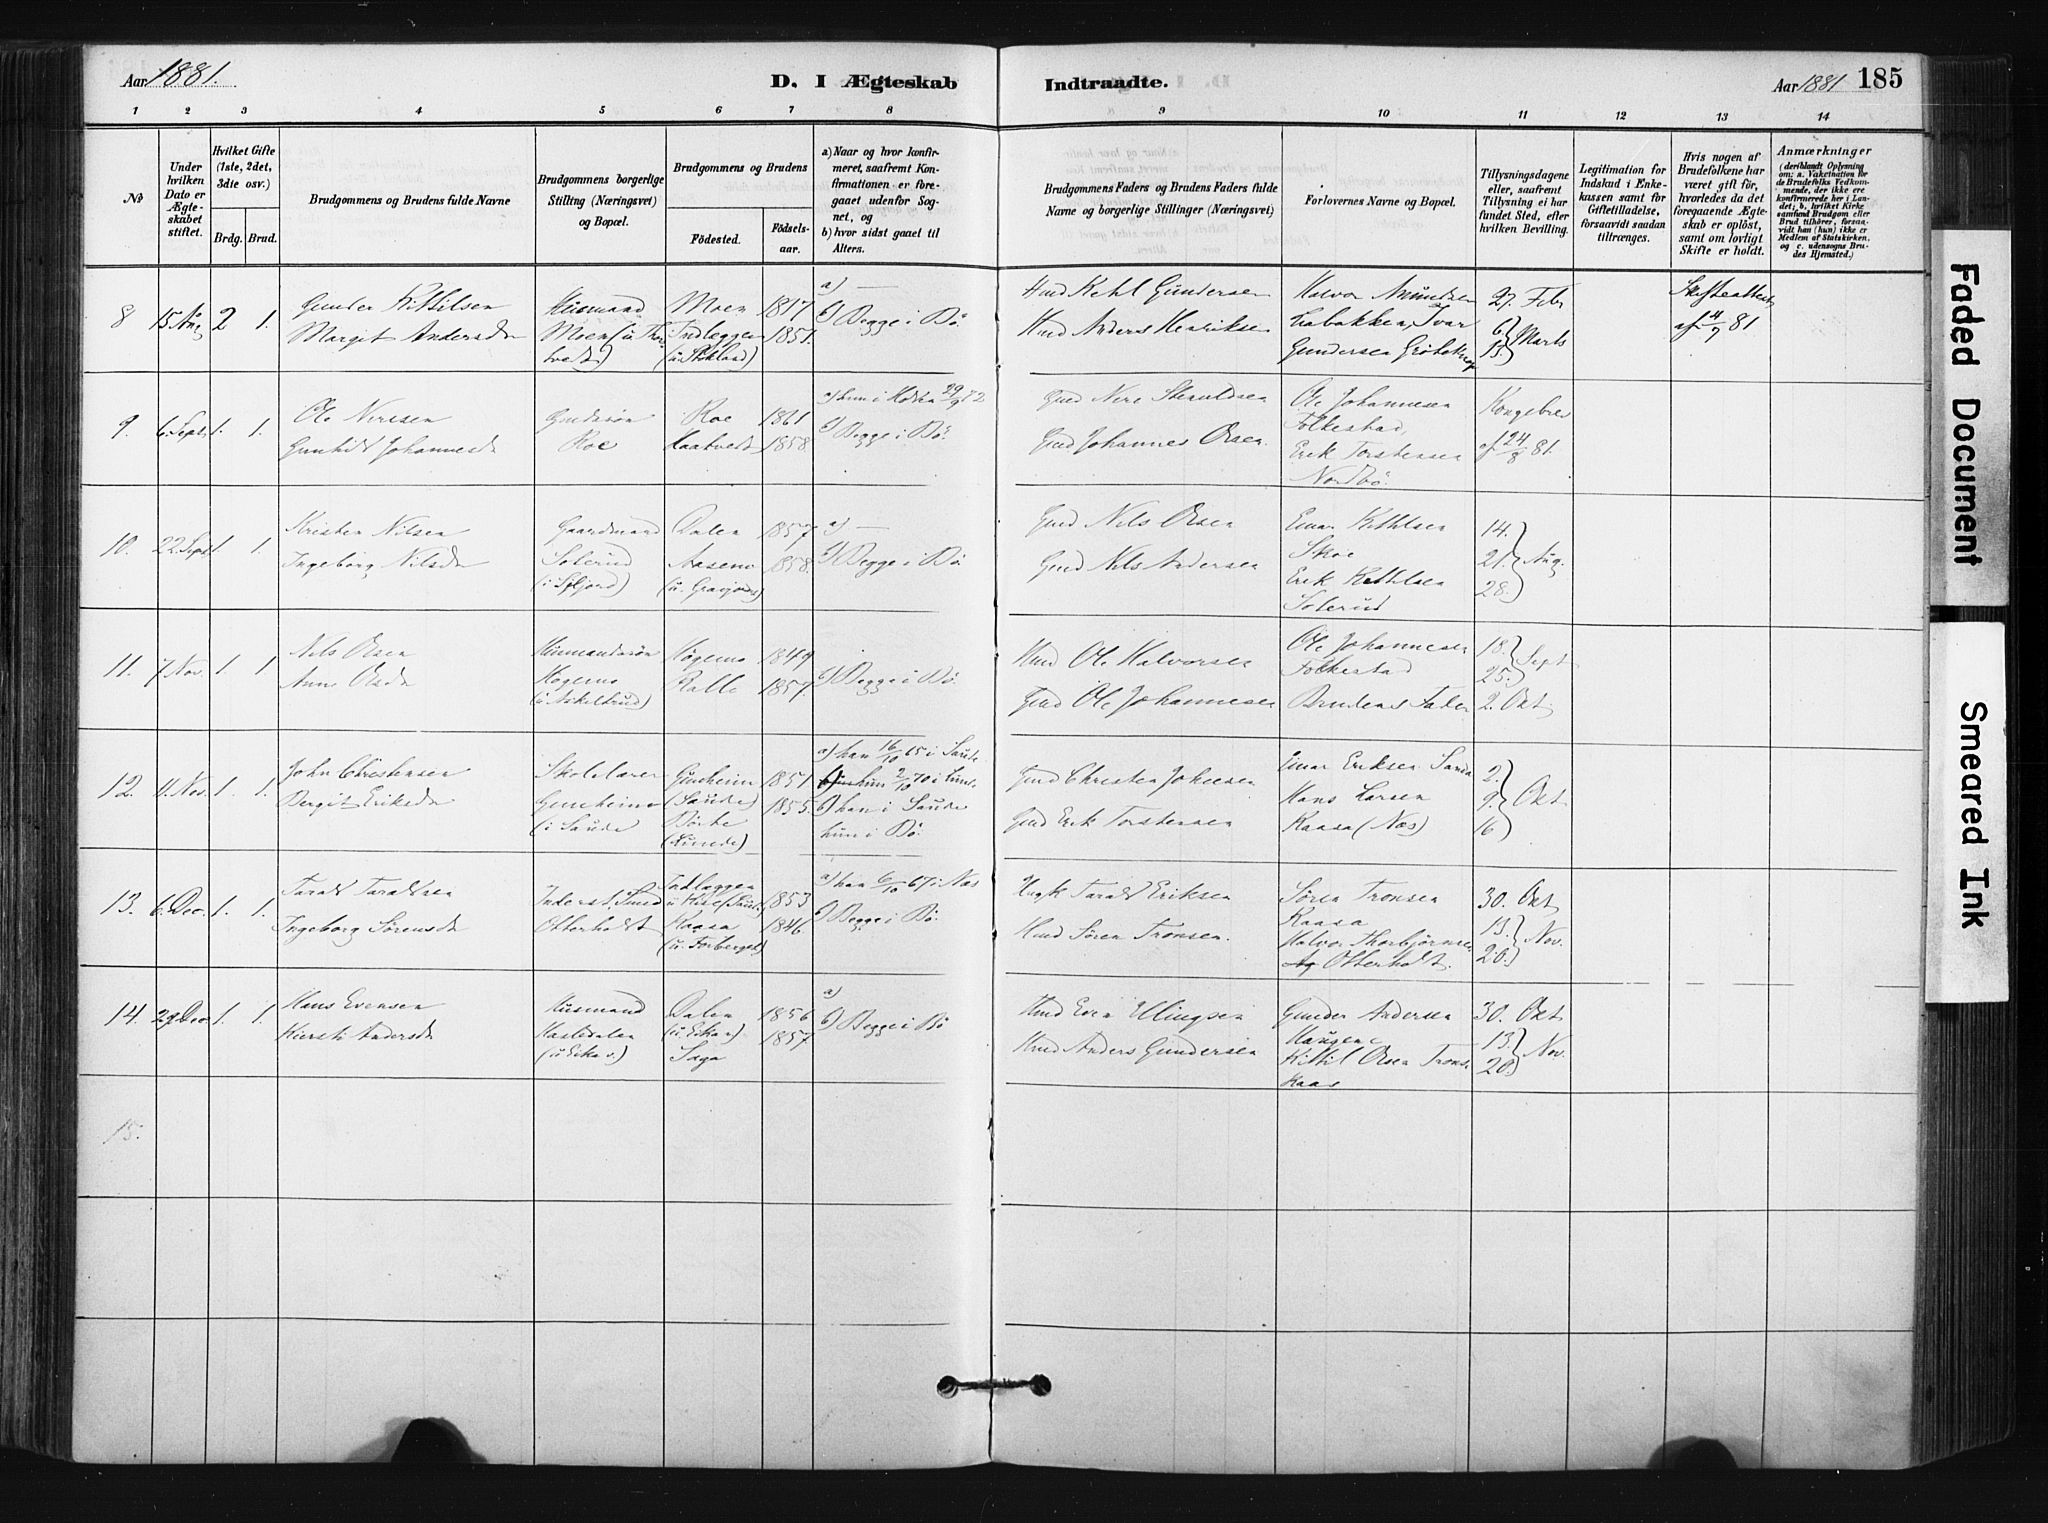 Aar 1881.
D. I Ægteskab
Indtraadte.
Aar 1881
185
1 2 3 4 5 6 7 8 9 10 11 12 13 14
No
Under hvilken Dato er Ægteskabet stiftet.
Hvilket Gifte (1ste, 2det, 3die osv.)
Brdg. Brud.
Brudgommens og Brudens fulde Navne
Brudgommens borgerlige Stilling (Næringsvei) og Bopæl.
Brudgommens og Brudens
Födested.
Födselsaar.
a) Naar og hvor konfirmeret, saafremt Konfirmationen er foregaaet udenfor Sognet, og
b) hvor sidst gaaet til Alters.
Brudgommens Faders og Brudens Faders fulde Navne og borgerlige Stillinger (Næringsvei)
Forlovernes Navne og Bopæl.
Tillysningsdagene eller, saafremt Tillysning ei har fundet Sted, efter hvilken Bevilling.
Legitimation for Indskud i Enkekassen samt for Giftetilladelse, forsaavidt saadan tiltrænges.
Hvis nogen af Brudefolkene har været gift för, hvorledes da det foregaaende Ægteskab er oplöst, samt om lovligt Skifte er holdt.
Anmærkninger
(deriblandt Oplysning om; a. Vakcination for de Brudefolks Vedkommende, der ikke ere konfirmerede her i Landet; b. hvilket Kirkesamfund Brudgom eller Brud tilhörer, forsaavidt han (hun) ikke er Medlem af Statskirken, og c. udensogns Brudes Hjemsted.)
8 15 Aug 2 1.
Gunder Kittilsen
Margit Andersdr
Husmand
Moen (u. Thor
Moen 1817
Indlæggen 1851.
(u. Stokland)
a) —
b) Begge i Bö.
Hmd Ketil Gundersen
Hmd Anders Henriksen
Halvor Amundsen
Labakken, Ivar
Gundersen
27. Febr
6 } Marts
13.
Skifteattest
af 4/7 81
9. 6 Sept. 1. 1.
Ole Nirisen
Gunhild Johannesdr
Gaardsön
Roe
Roe 1861
Haatvedt 1858.
a) hun i 29/9 72
b) Begge i Bö.
Gmd Nire Skouldsen
Gmd Johannes Olsen.
Ole Johannesen
Folkestad,
Erik Torstensen
Nordbö.
Kongebrev
af 24/8 81.
10. 22 Sept 1. 1.
Kristen Nilsen
Ingeborg Nilsdr
Gaardmand
Soterud
(i Seljord)
Dalen 1857
Aasene 1858.
a) —
b) Begge i Bö.
Gmd Nils Olsen
Gmd Nils Andersen
Einar Kittilsen
Skoe
Erik Kittilsen
Soterud
14.
21. } Aug.
28.
11. 7 Nov. 1. 1
Nils Olsen
Anne Olsdr
Husmandssön
Högemo
(u. Askeltrud)
Högemo 1849
Ralle 1857.
b) Begge i Bö.
Hmd Ole Halvorsen
Gmd Ole Johannesen
Ole Johannesen
Folkestad
Brudens Fader
18. } Sept
25.
2. Okt.
12. 11. Nov. 1. 1.
John Christensen
Bergit Eriksdr
Skolelærer
Gunheim
(i Saude
Gunheim 1851
(Saude) 1855.
Börte
(Lunde)
a) han 16/10 65 i Saude.
hun 2/10 70 i Lunde
b) han i Saude
hun i Bö.
Gmd Christen Johnsen
Gmd Erik Torstensen
Einar Eriksen Sanda
Hans Larsen
Kaasa (Næs)
2.
9. } Okt
16
13. 6 Dec. 1. 1.
Tarald Taraldsen
Ingeborg Sörensdr
Inderst, Smed
Otterholt
Indlæggen 1853
Kaasa 1846
(u. Forberget)
a) han 6/10 67 i Næs
b) Begge i Bö.
Ungk Tarald Eriksen
Hmd Sören Tronsen.
Sören Tronsen
Kaasa
Halvor Thorbjörnsen
Otterholt.
30. Okt
13. } Nov.
20.
14. 29 Dec. 1. 1.
Hans Evensen
Kiersti Andersdr
Husmand
Hasledalen
(u. Eikas)
Dalen 1856
(u. Eikas) 1857.
Saga
a)
b) Begge i Bö
Hmd Even Ellingsen
Hmd Anders Gundersen
Gunder Andersen
Haugene
Kittil Olsen Trons
kaas
30. Okt
13. } Nov.
20.
15.
Faded Document
Smeared Ink